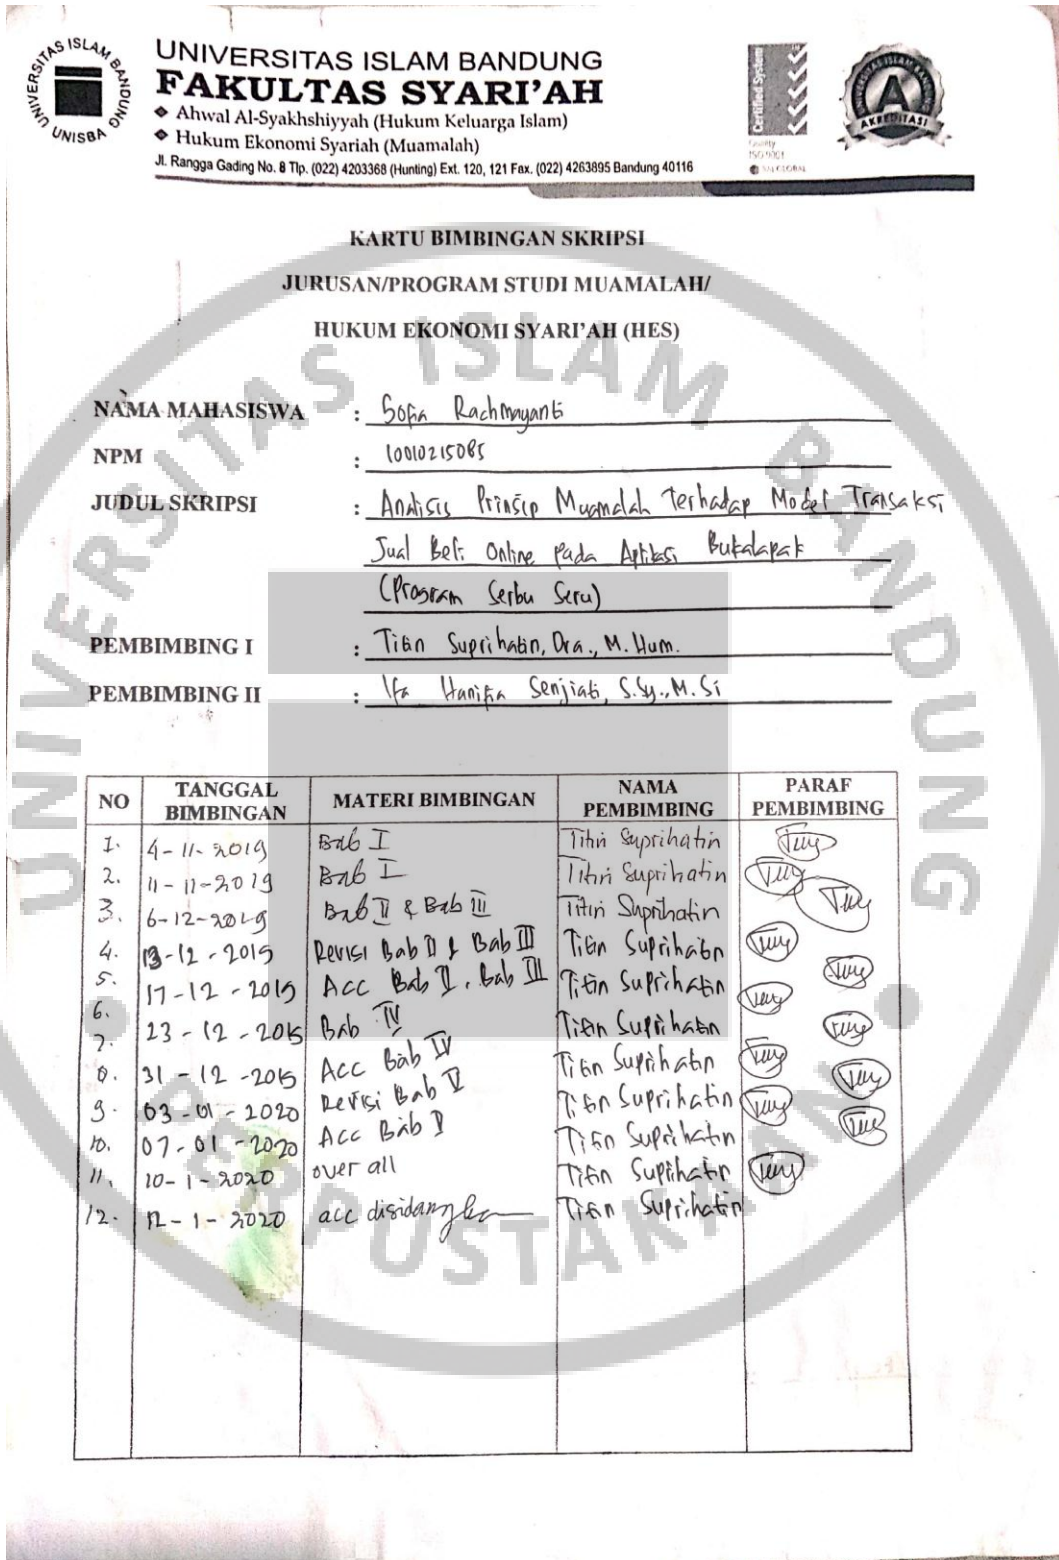 UNIVERSITAS ISLAM BANDUNG
UNISBA
UNIVERSITAS ISLAM BANDUNG
FAKULTAS SYARI'AH
❖ Ahwal Al-Syakhshiyyah (Hukum Keluarga Islam)
❖ Hukum Ekonomi Syariah (Muamalah)
Jl. Rangga Gading No. 8 Tlp. (022) 4203368 (Hunting) Ext. 120, 121 Fax. (022) 4263895 Bandung 40116
Certified System
Quality
ISO 9001
SAI GLOBAL
A
AKREDITASI
KARTU BIMBINGAN SKRIPSI
JURUSAN/PROGRAM STUDI MUAMALAH/
HUKUM EKONOMI SYARI'AH (HES)
NAMA MAHASISWA : Sofia Rachmayanti
NPM : 10010215085
JUDUL SKRIPSI : Analisis Prinsip Muamalah Terhadap Model Transaksi
Jual Beli Online pada Aplikasi Bukalapak
(Program Serbu Seru)
PEMBIMBING I : Titin Suprihatin, Dra., M. Hum.
PEMBIMBING II : Ifa Hanifia Senjiati, S.Sy., M. Si
NO TANGGAL BIMBINGAN MATERI BIMBINGAN NAMA PEMBIMBING PARAF PEMBIMBING
1. 4-11-2019 Bab I Titin Suprihatin
2. 11-11-2019 Bab I Titin Suprihatin
3. 6-12-2019 Bab II & Bab III Titin Suprihatin
4. 13-12-2019 Revisi Bab II & Bab III Titin Suprihatin
5. 17-12-2019 Acc Bab II, Bab III Titin Suprihatin
6. 23-12-2019 Bab IV Titin Suprihatin
7. 31-12-2019 Acc Bab IV Titin Suprihatin
8. 03-01-2020 Revisi Bab V Titin Suprihatin
9. 07-01-2020 Acc Bab V Titin Suprihatin
10. 10-1-2020 over all Titin Suprihatin
11. 12-1-2020 acc disidangkan Titin Suprihatin
12.
UNIVERSITAS ISLAM BANDUNG
PERPUSTAKAAN